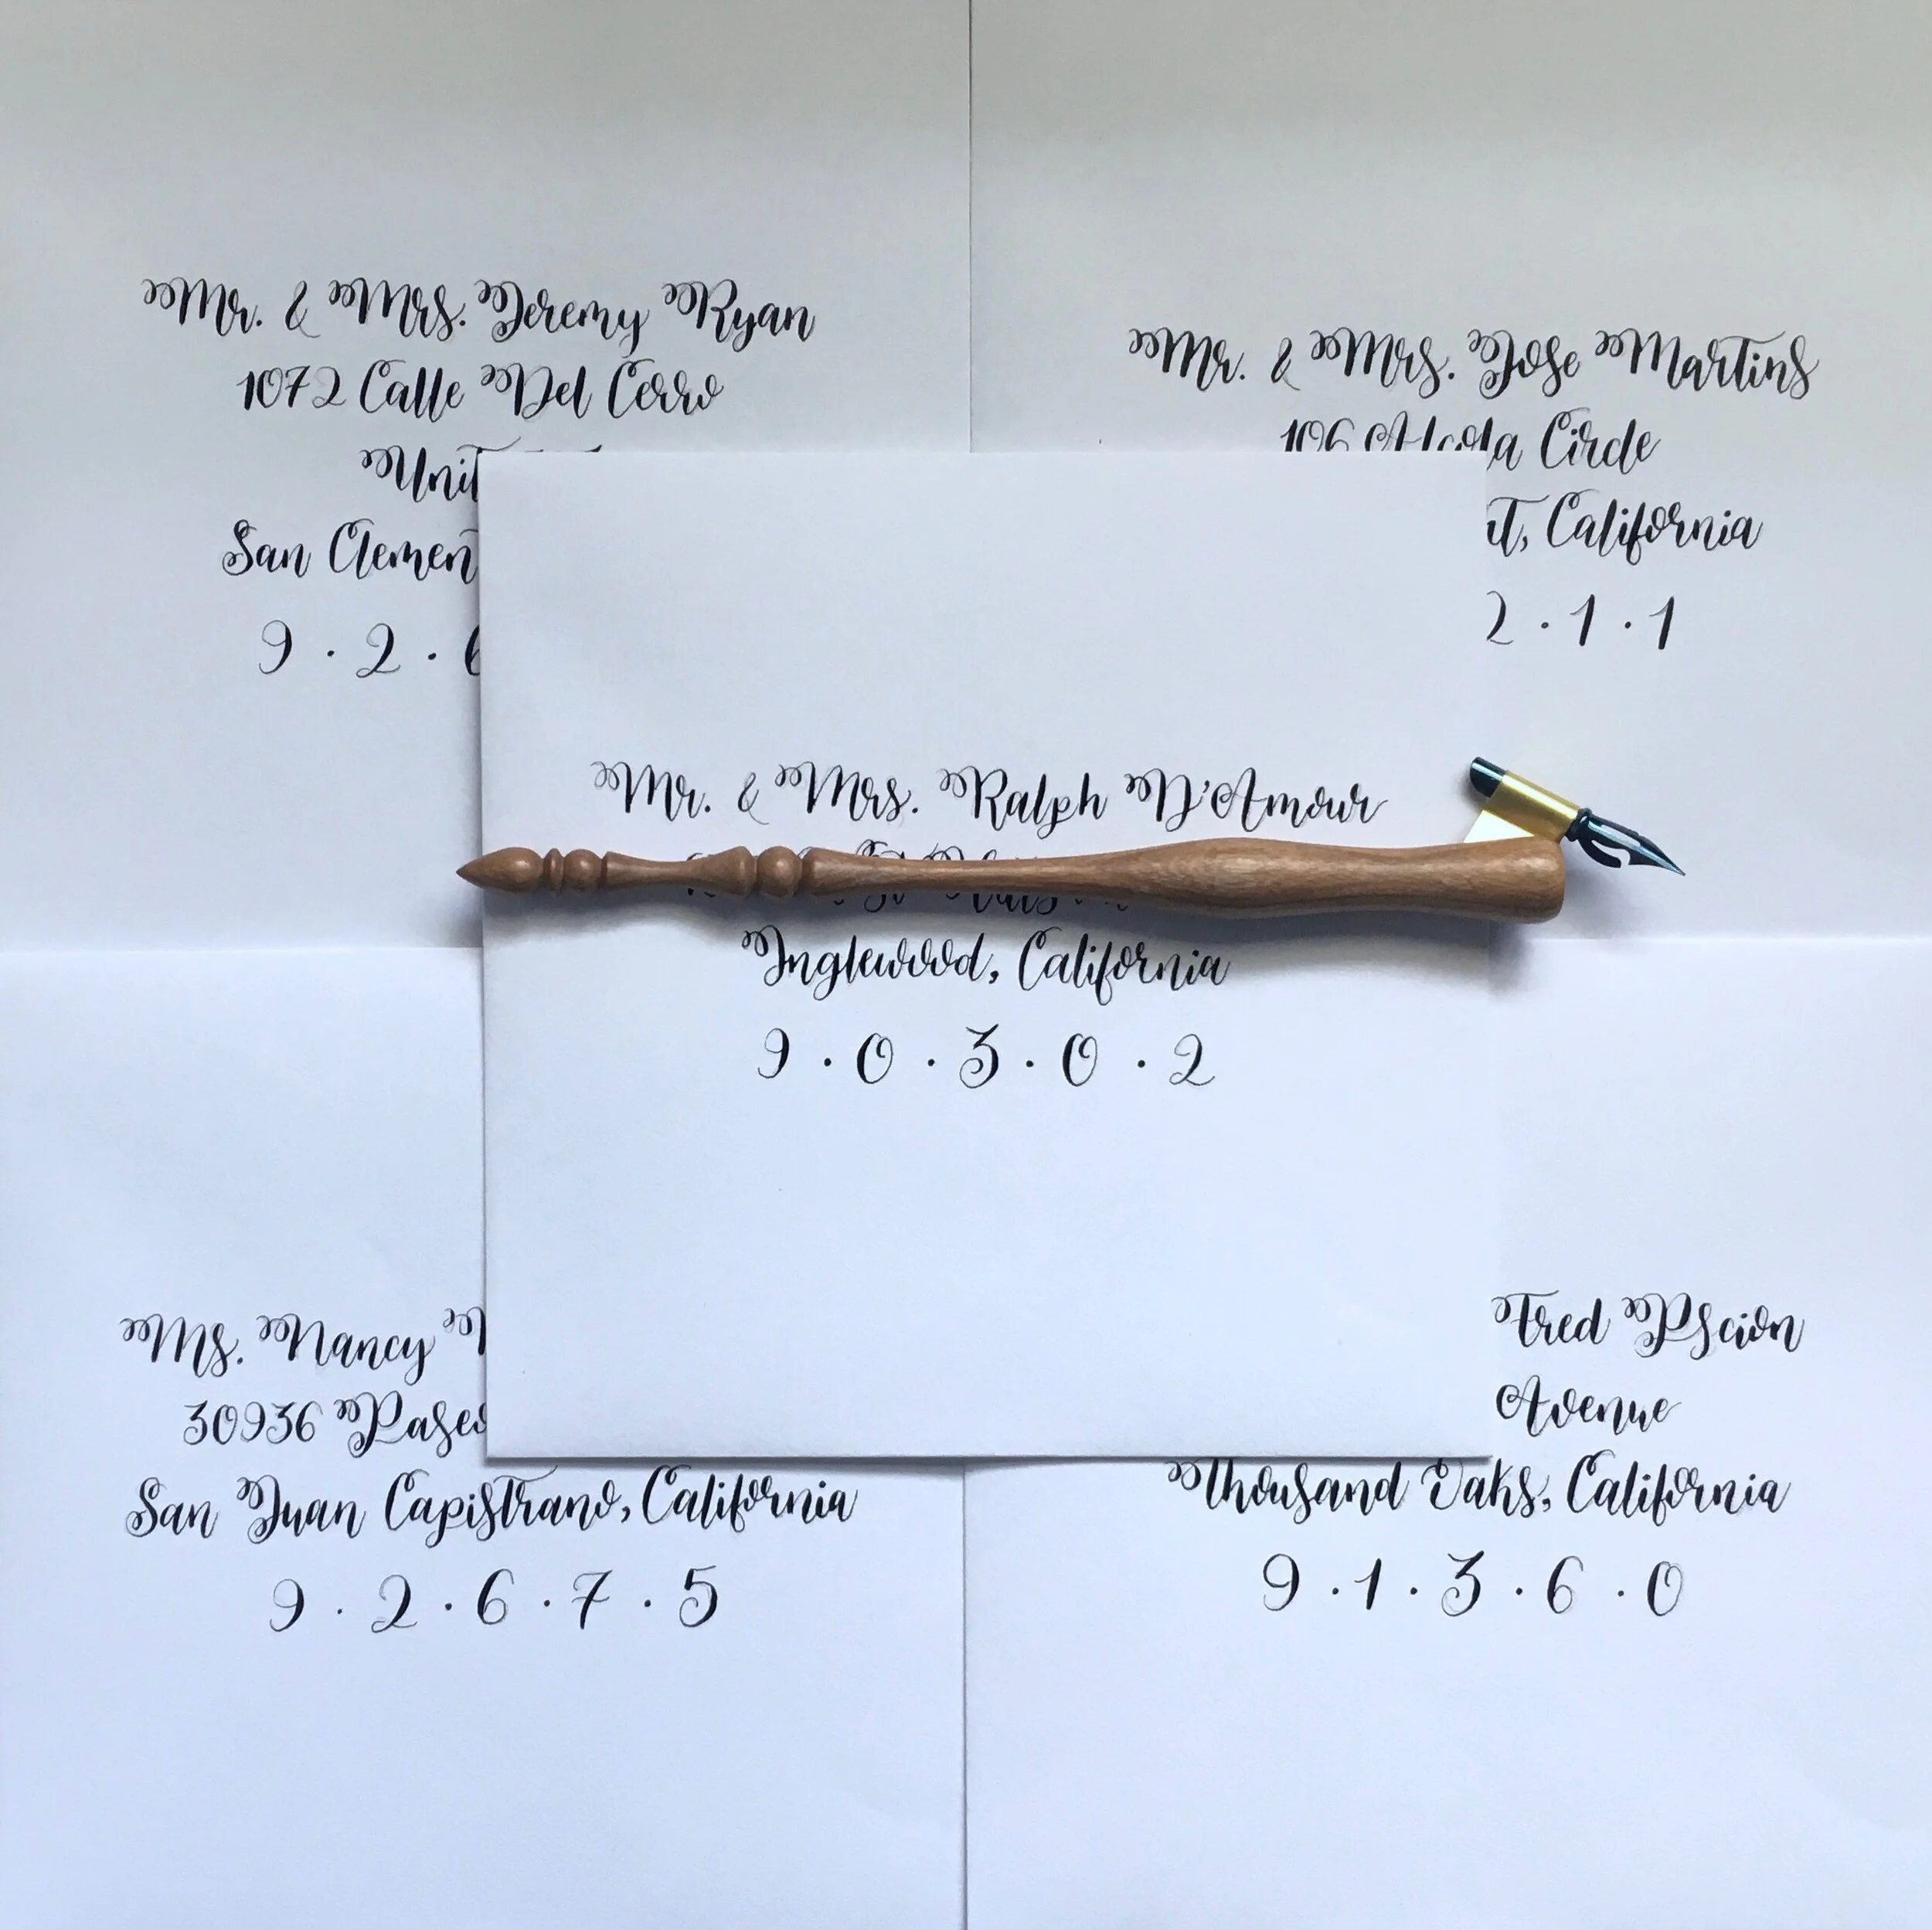 Mr. & Mrs. Jeremy Ryan
1072 Calle Del Cerro
Unit
San
9 · 2 ·
Mr. & Mrs. Jose Martins
106 Circle
California
2 · 1 · 1
Mr. & Mrs. Ralph D'Amour
Inglewood, California
9 · 0 · 3 · 0 · 2
Ms. Nancy
30936
San Juan Capistrano, California
9 · 2 · 6 · 7 · 5
Fred Pscion
Avenue
Thousand Oaks, California
9 · 1 · 3 · 6 · 0